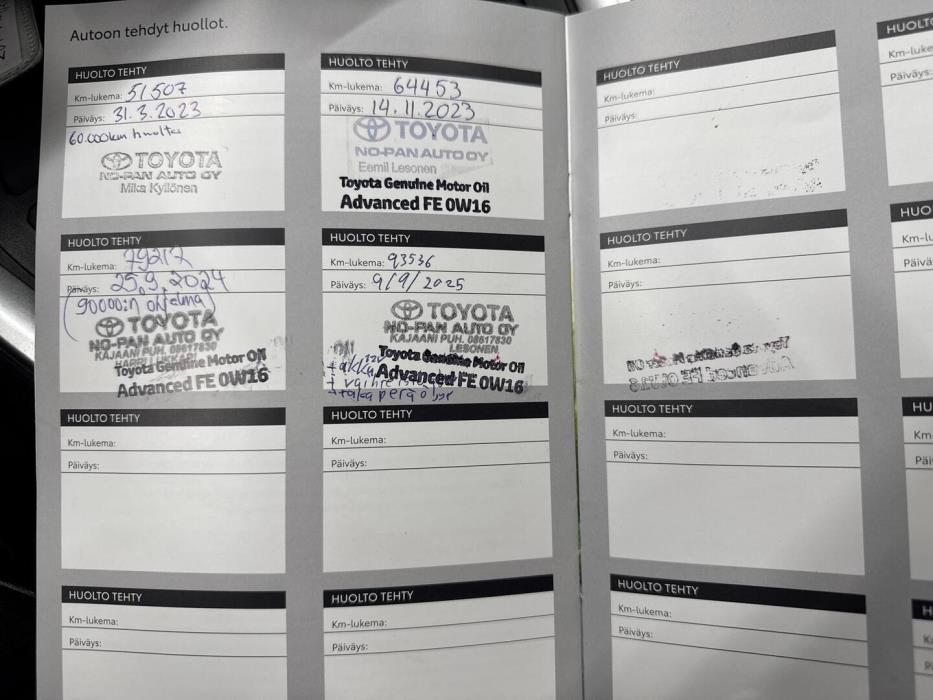 Autoon tehdyt huollot.
HUOLTO TEHTY
Km-lukema: 51507
Päiväys: 31.3.2023
60.000km huolto
TOYOTA
NO-PAN AUTO OY
Mika Kyllönen
HUOLTO TEHTY
Km-lukema: 64453
Päiväys: 14.11.2023
TOYOTA
NO-PAN AUTO OY
Eemil Lesonen
Toyota Genuine Motor Oil
Advanced FE 0W16
HUOLTO TEHTY
Km-lukema:
Päiväys:
HUOLTO
Km-luke
Päiväys:
HUOLTO TEHTY
Km-lukema: 79217
Päiväys: 25.9.2024
(90000:n ohjelma)
TOYOTA
NO-PAN AUTO OY
KAJAANI PUH. 08617830
Toyota Genuine Motor Oil
Advanced FE 0W16
HUOLTO TEHTY
Km-lukema: 93536
Päiväys: 9/9/2025
TOYOTA
NO-PAN AUTO OY
KAJAANI PUH. 08617830
LESONEN
Toyota Genuine Motor Oil
Advanced FE 0W16
HUOLTO TEHTY
Km-lukema:
Päiväys:
HUO
Km-lu
Päivä
HUOLTO TEHTY
Km-lukema:
Päiväys:
HUOLTO TEHTY
Km-lukema:
Päiväys:
HUOLTO TEHTY
Km-lukema:
Päiväys:
HU
Km-
Päi
HUOLTO TEHTY
Km-lukema:
Päiväys:
HUOLTO TEHTY
Km-lukema:
Päiväys:
HUOLTO TEHTY
Km-lukema:
Päiväys: